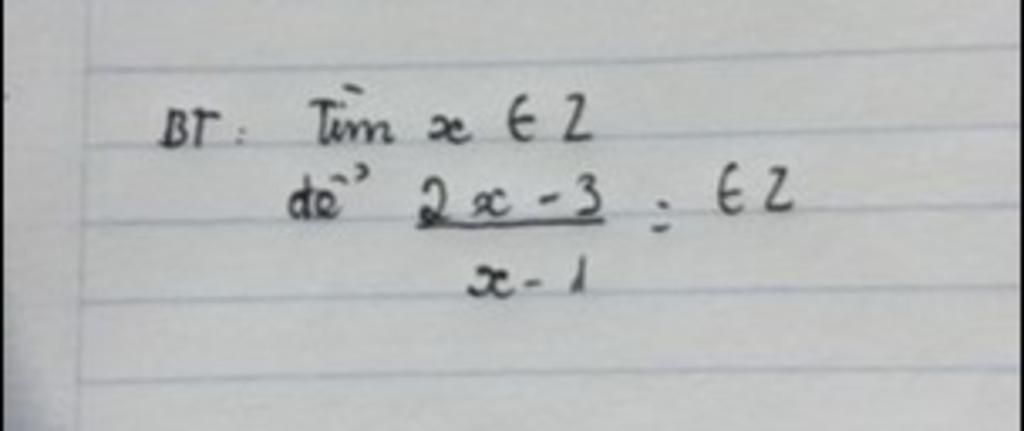 BT: Tìm x ∈ Z
để 2x - 3 : ∈ Z
x - 1